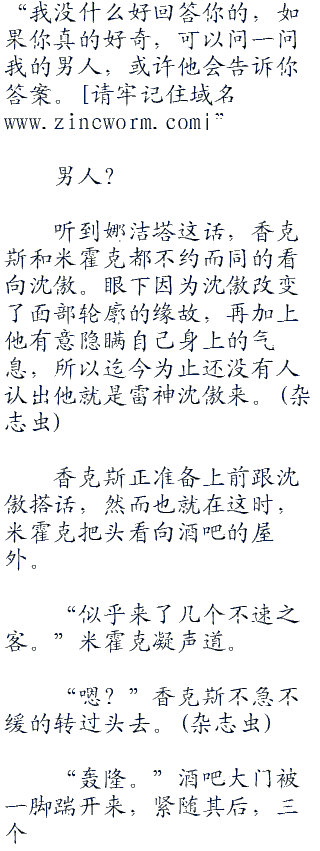 “我没什么好回答你的，如
果你真的好奇，可以问一问
我的男人，或许他会告诉你
答案。[请牢记住域名
www.zincworm.com|”
男人？
听到娜洁塔这话，香克
斯和米霍克都不约而同的看
向沈傲。眼下因为沈傲改变
了面部轮廓的缘故，再加上
他有意隐瞒自己身上的气
息，所以迄今为止还没有人
认出他就是雷神沈傲来。(杂
志虫)
香克斯正准备上前跟沈
傲搭话，然而也就在这时，
米霍克把头看向酒吧的屋
外。
“似乎来了几个不速之
客。”米霍克凝声道。
“嗯？”香克斯不急不
缓的转过头去。(杂志虫)
“轰隆。”酒吧大门被
一脚踹开来，紧随其后，三
个